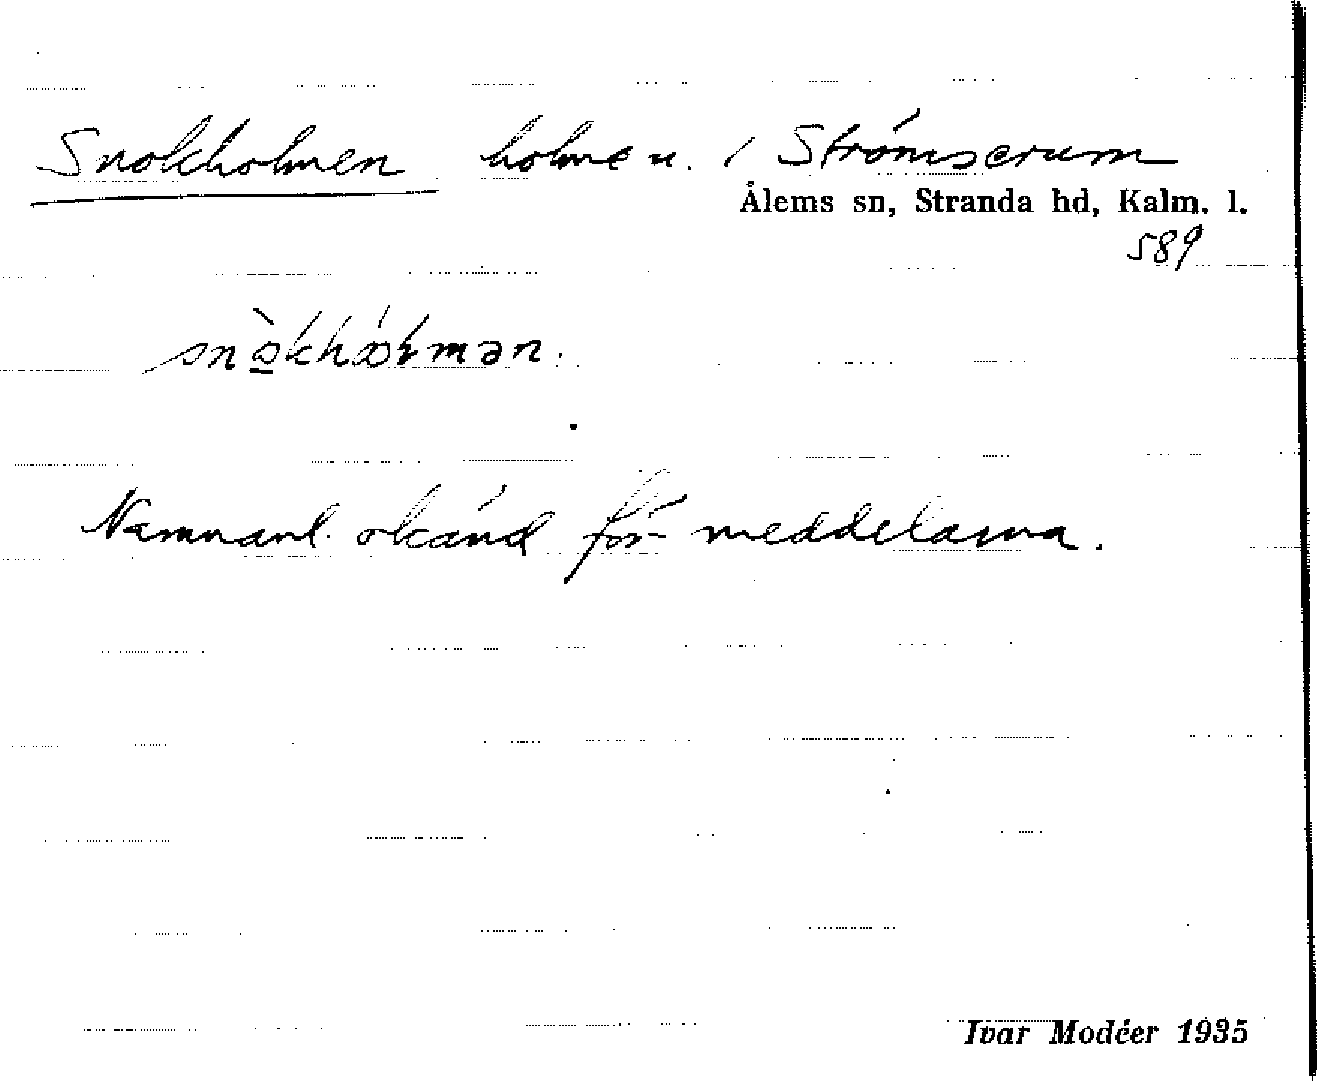 Snokholmen holme n. i Strömserum
Ålems sn, Stranda hd, Kalm. l.
589
Namnanl. okänd för meddelarna.
Ivar Modéer 1935